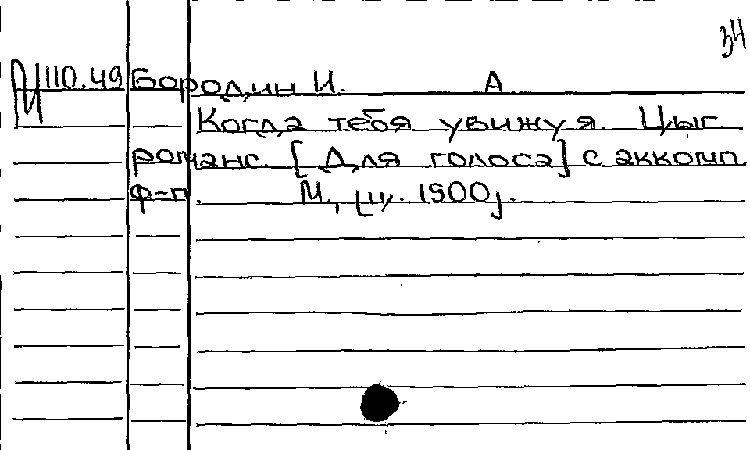 34
110.49 Бородин И. А
Когда тебя увижу я. Цыг
романс. [Для голоса] с аккомп
ф-п. М., ц. 1900г.